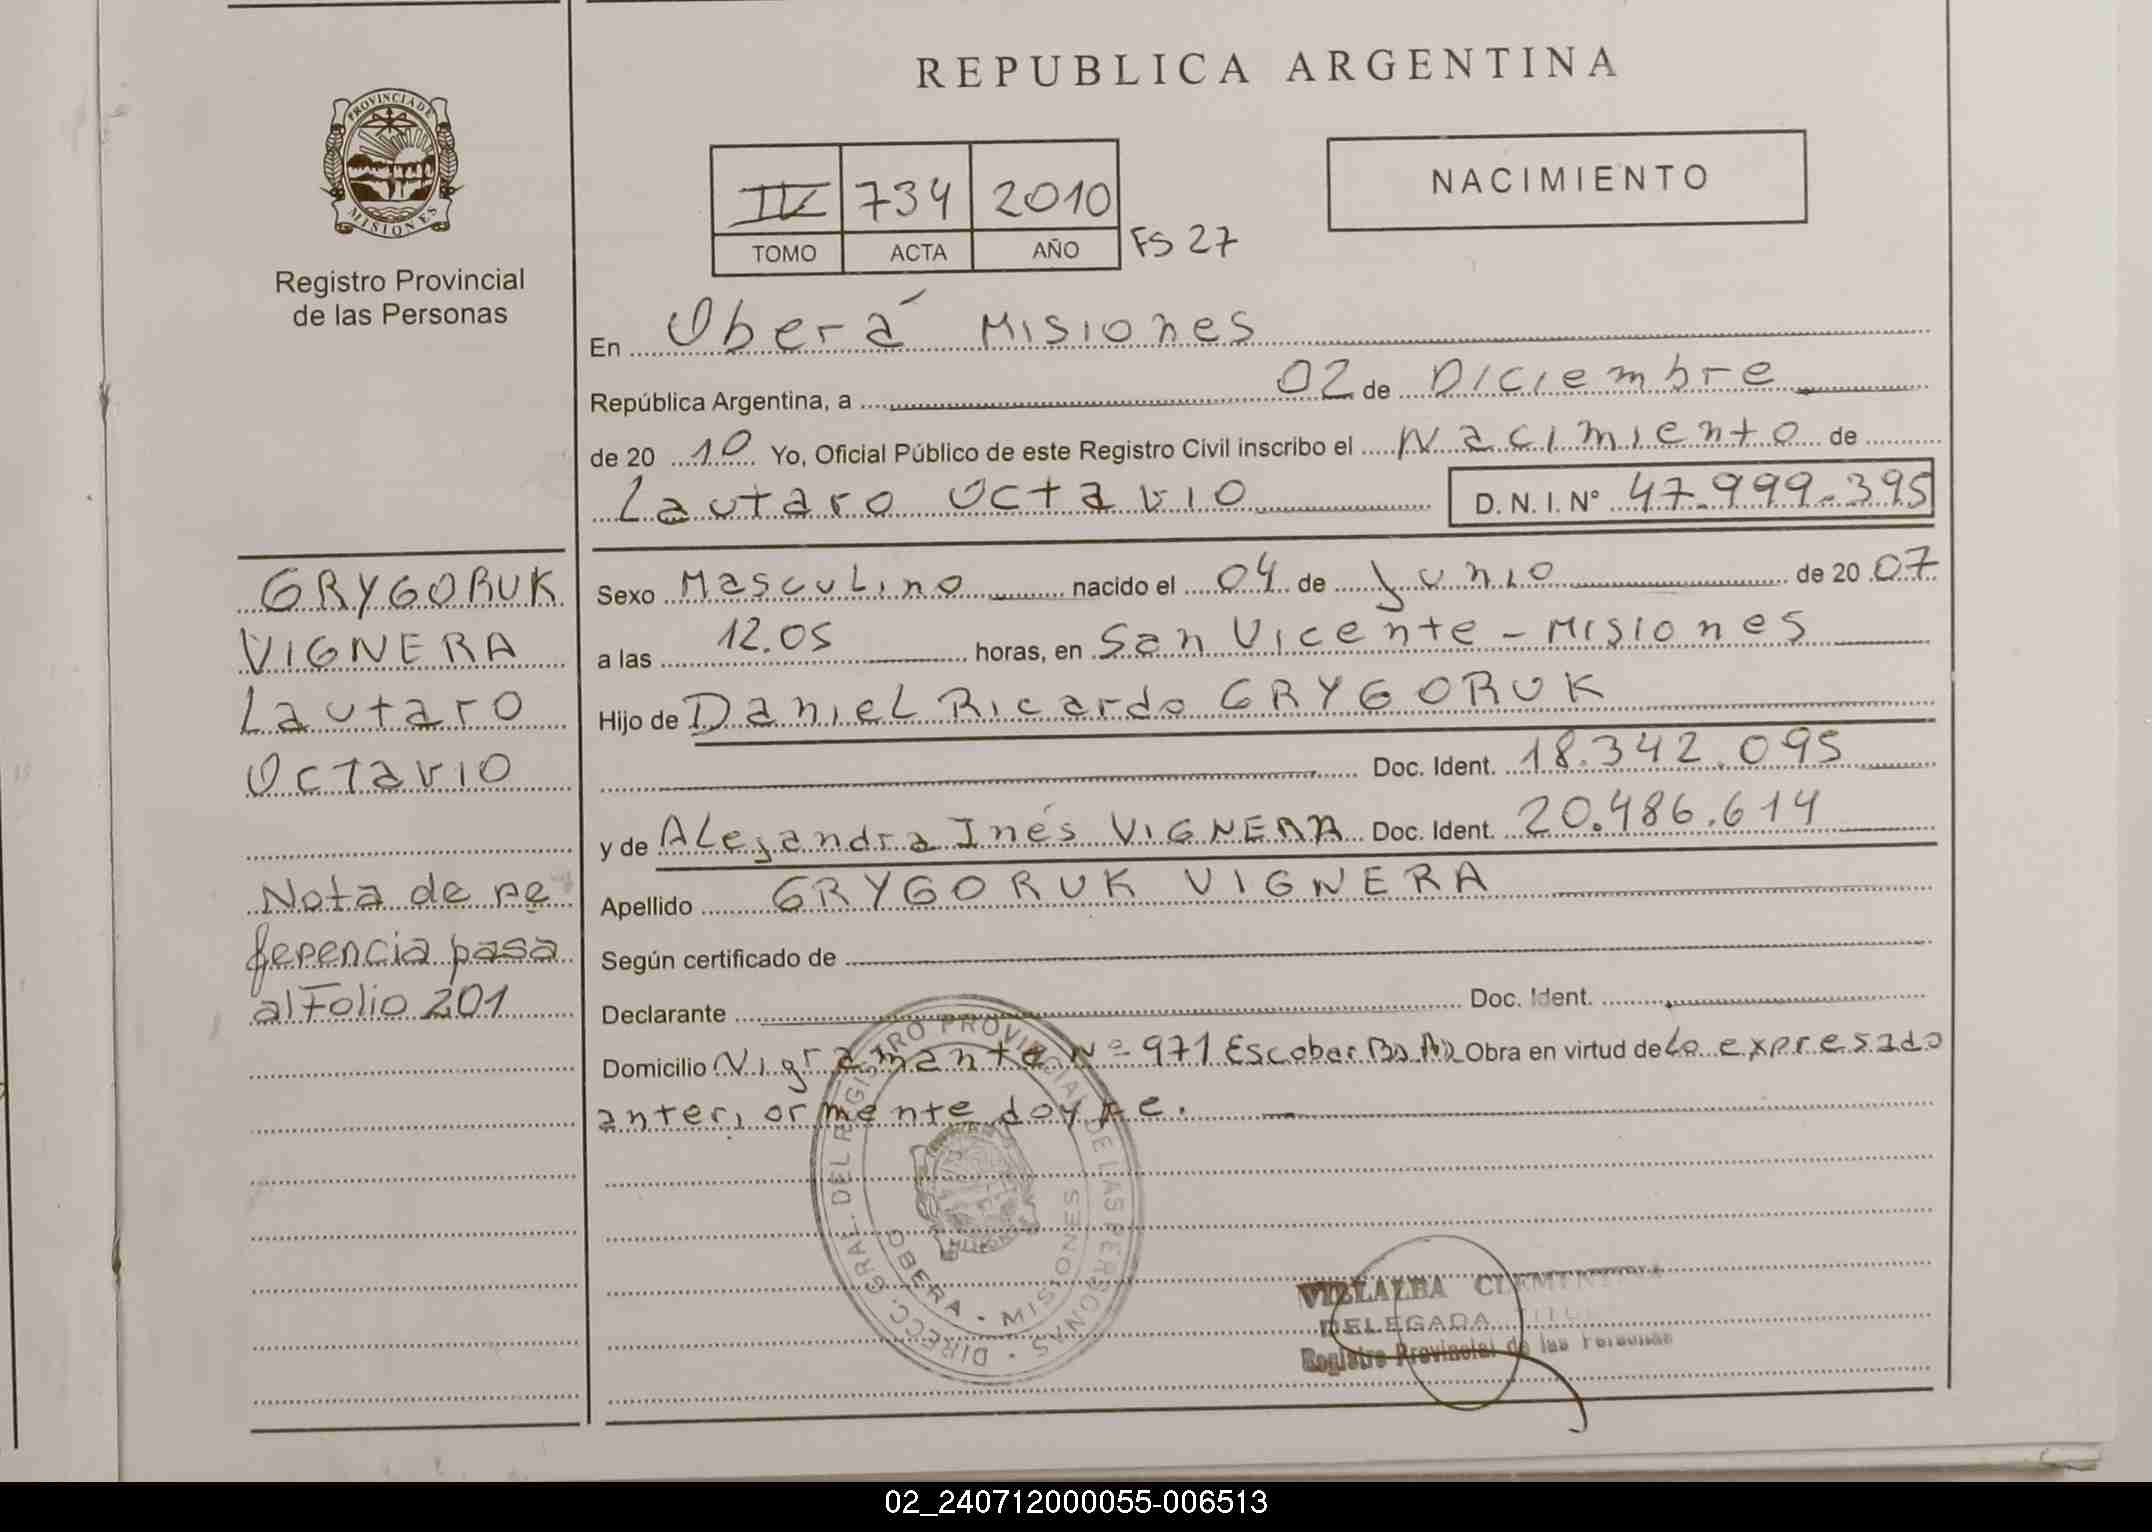 REPUBLICA ARGENTINA
PROVINCIA DE
MISIONES
Registro Provincial
de las Personas
IV 734 2010
TOMO ACTA AÑO FS 27
NACIMIENTO
En Oberá Misiones
República Argentina, a 02 de Diciembre
de 20 10 Yo, Oficial Público de este Registro Civil inscribo el Nacimiento de
Lautaro Octavio D. N. I. Nº 47.999.395
GRYGORUK
VIGNERA
Lautaro
Octavio
Nota de re
ferencia pasa
al Folio 201
Sexo Masculino nacido el 04 de Junio de 20 07
a las 12.05 horas, en San Vicente - Misiones
Hijo de Daniel Ricardo GRYGORUK
Doc. Ident. 18.342.095
y de Alejandra Inés VIGNERA Doc. Ident. 20.486.614
Apellido GRYGORUK VIGNERA
Según certificado de
Declarante Doc. Ident.
Domicilio Vigramante Nº 971 Escobar Bs As Obra en virtud de Lo expresado
anteriormente doy fe.
DIRECC. GRAL. DEL REGISTRO PROVINCIAL DE LAS PERSONAS
OBERA - MISIONES
VILLALBA CLEMENTINA
DELEGADA
Registro Provincial de las Personas
02_240712000055-006513